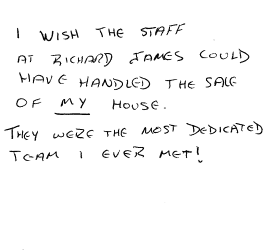 I WISH THE STAFF
AT RICHARD JAMES COULD
HAVE HANDLED THE SALE
OF MY HOUSE.
THEY WERE THE MOST DEDICATED
TEAM I EVER MET!